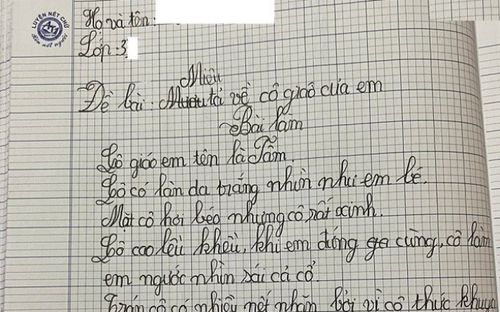 LUYỆN NÉT CHỮ
Rèn nết người
Họ và tên:
Lớp: 3
Miêu
Đề bài: Mươu tả về cô giáo của em
Bài làm
Cô giáo em tên là Tâm.
Cô có làn da trắng nhìn như em bé.
Mặt cô hơi béo nhưng cô rất xinh.
Cô cao lêu khêu, khi em đứng gần cùng, cô làm
em ngước nhìn sái cả cổ.
Trán cô có nhiều nết nhăn bởi vì cô thức khuya